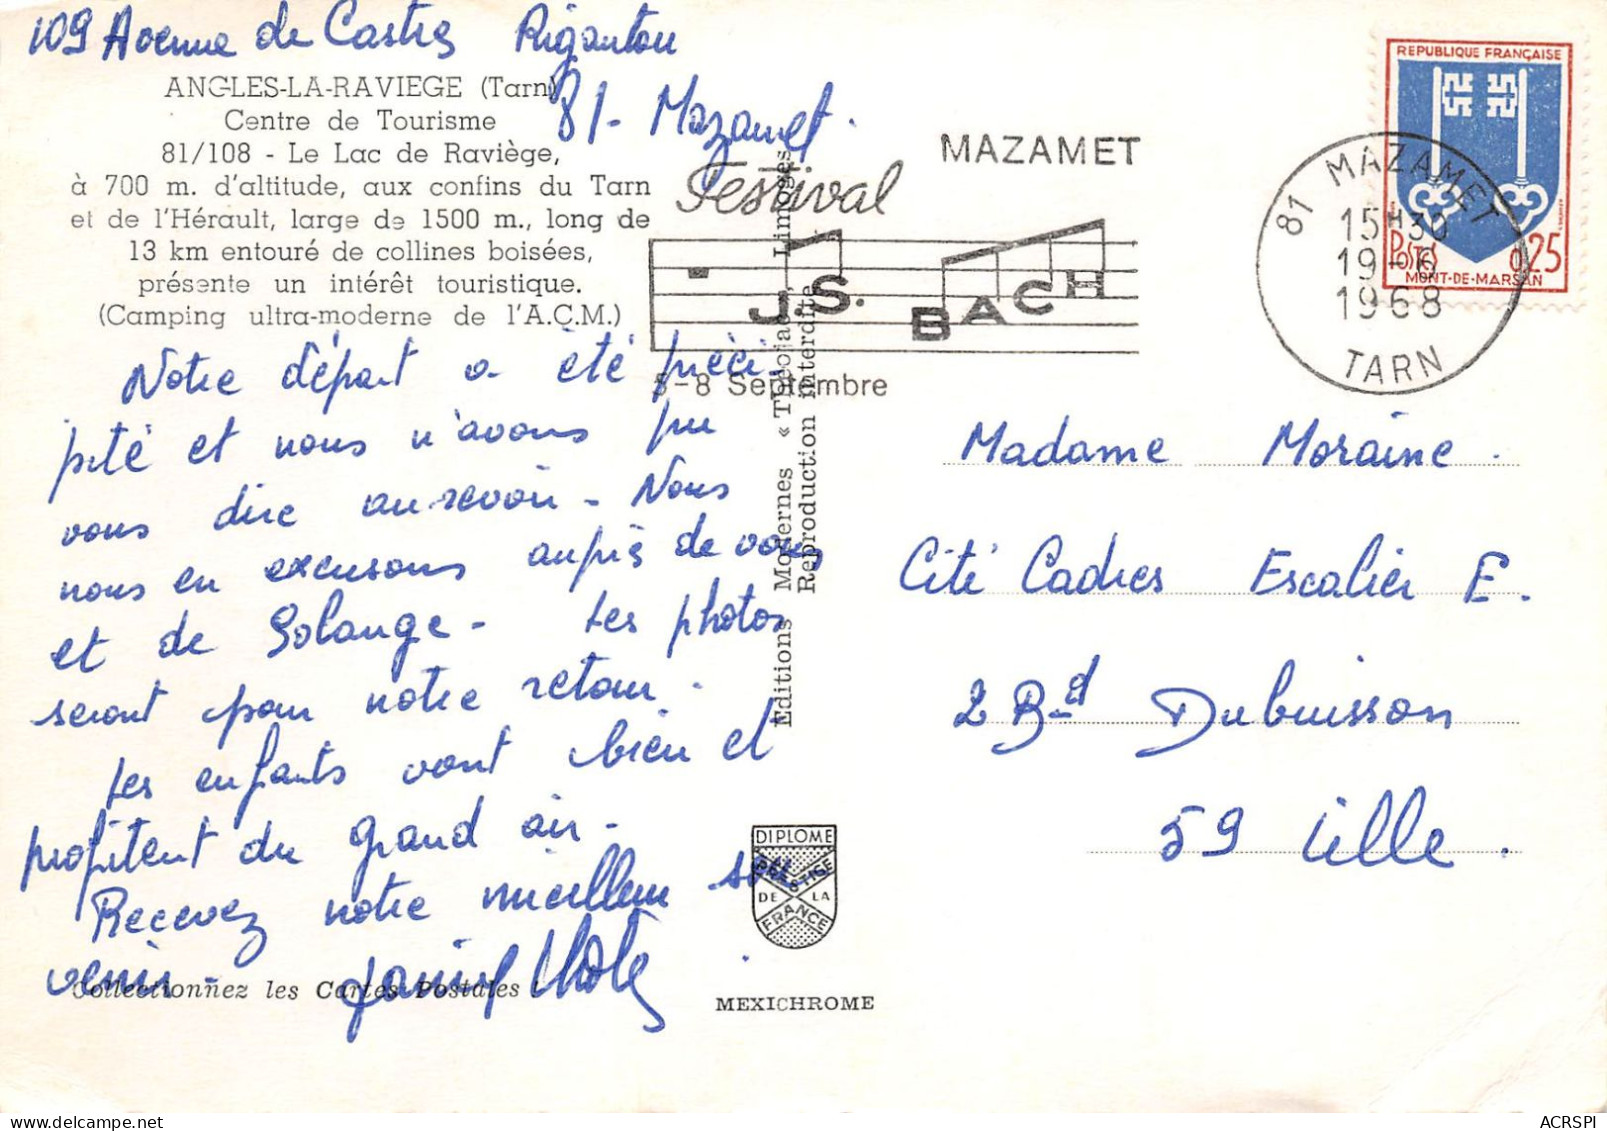 109 Avenue de Castres Rigautou
81 - Mazamet.
ANGLES-LA-RAVIEGE (Tarn)
Centre de Tourisme
81/108 - Le Lac de Raviège,
à 700 m. d'altitude, aux confins du Tarn
et de l'Hérault, large de 1500 m., long de
13 km entouré de collines boisées,
présente un intérêt touristique.
(Camping ultra-moderne de l'A.C.M.)
Notre départ a été préci-
pité et nous n'avons pu
vous dire au revoir - Nous
nous en excusons auprès de vous
et de Solange - Les photos
seront pour notre retour.
Les enfants vont bien et
profitent du grand air -
Recevez notre meilleur sou
venir -
Collectionnez les Cartes Postales !
Editions Modernes « Théojac », Limoges
Reproduction interdite
DIPLOME
PRESTIGE
DE LA
FRANCE
MEXICHROME
MAZAMET
Festival
J.S. BACH
5-8 Septembre
81 MAZAMET
15H30
19-6
1968
TARN
REPUBLIQUE FRANÇAISE
POSTES 0,25
MONT-DE-MARSAN
Madame Moraine.
Cité Cadres Escalier E.
2 Bd Dubuisson
59 Lille.
ACRSPI